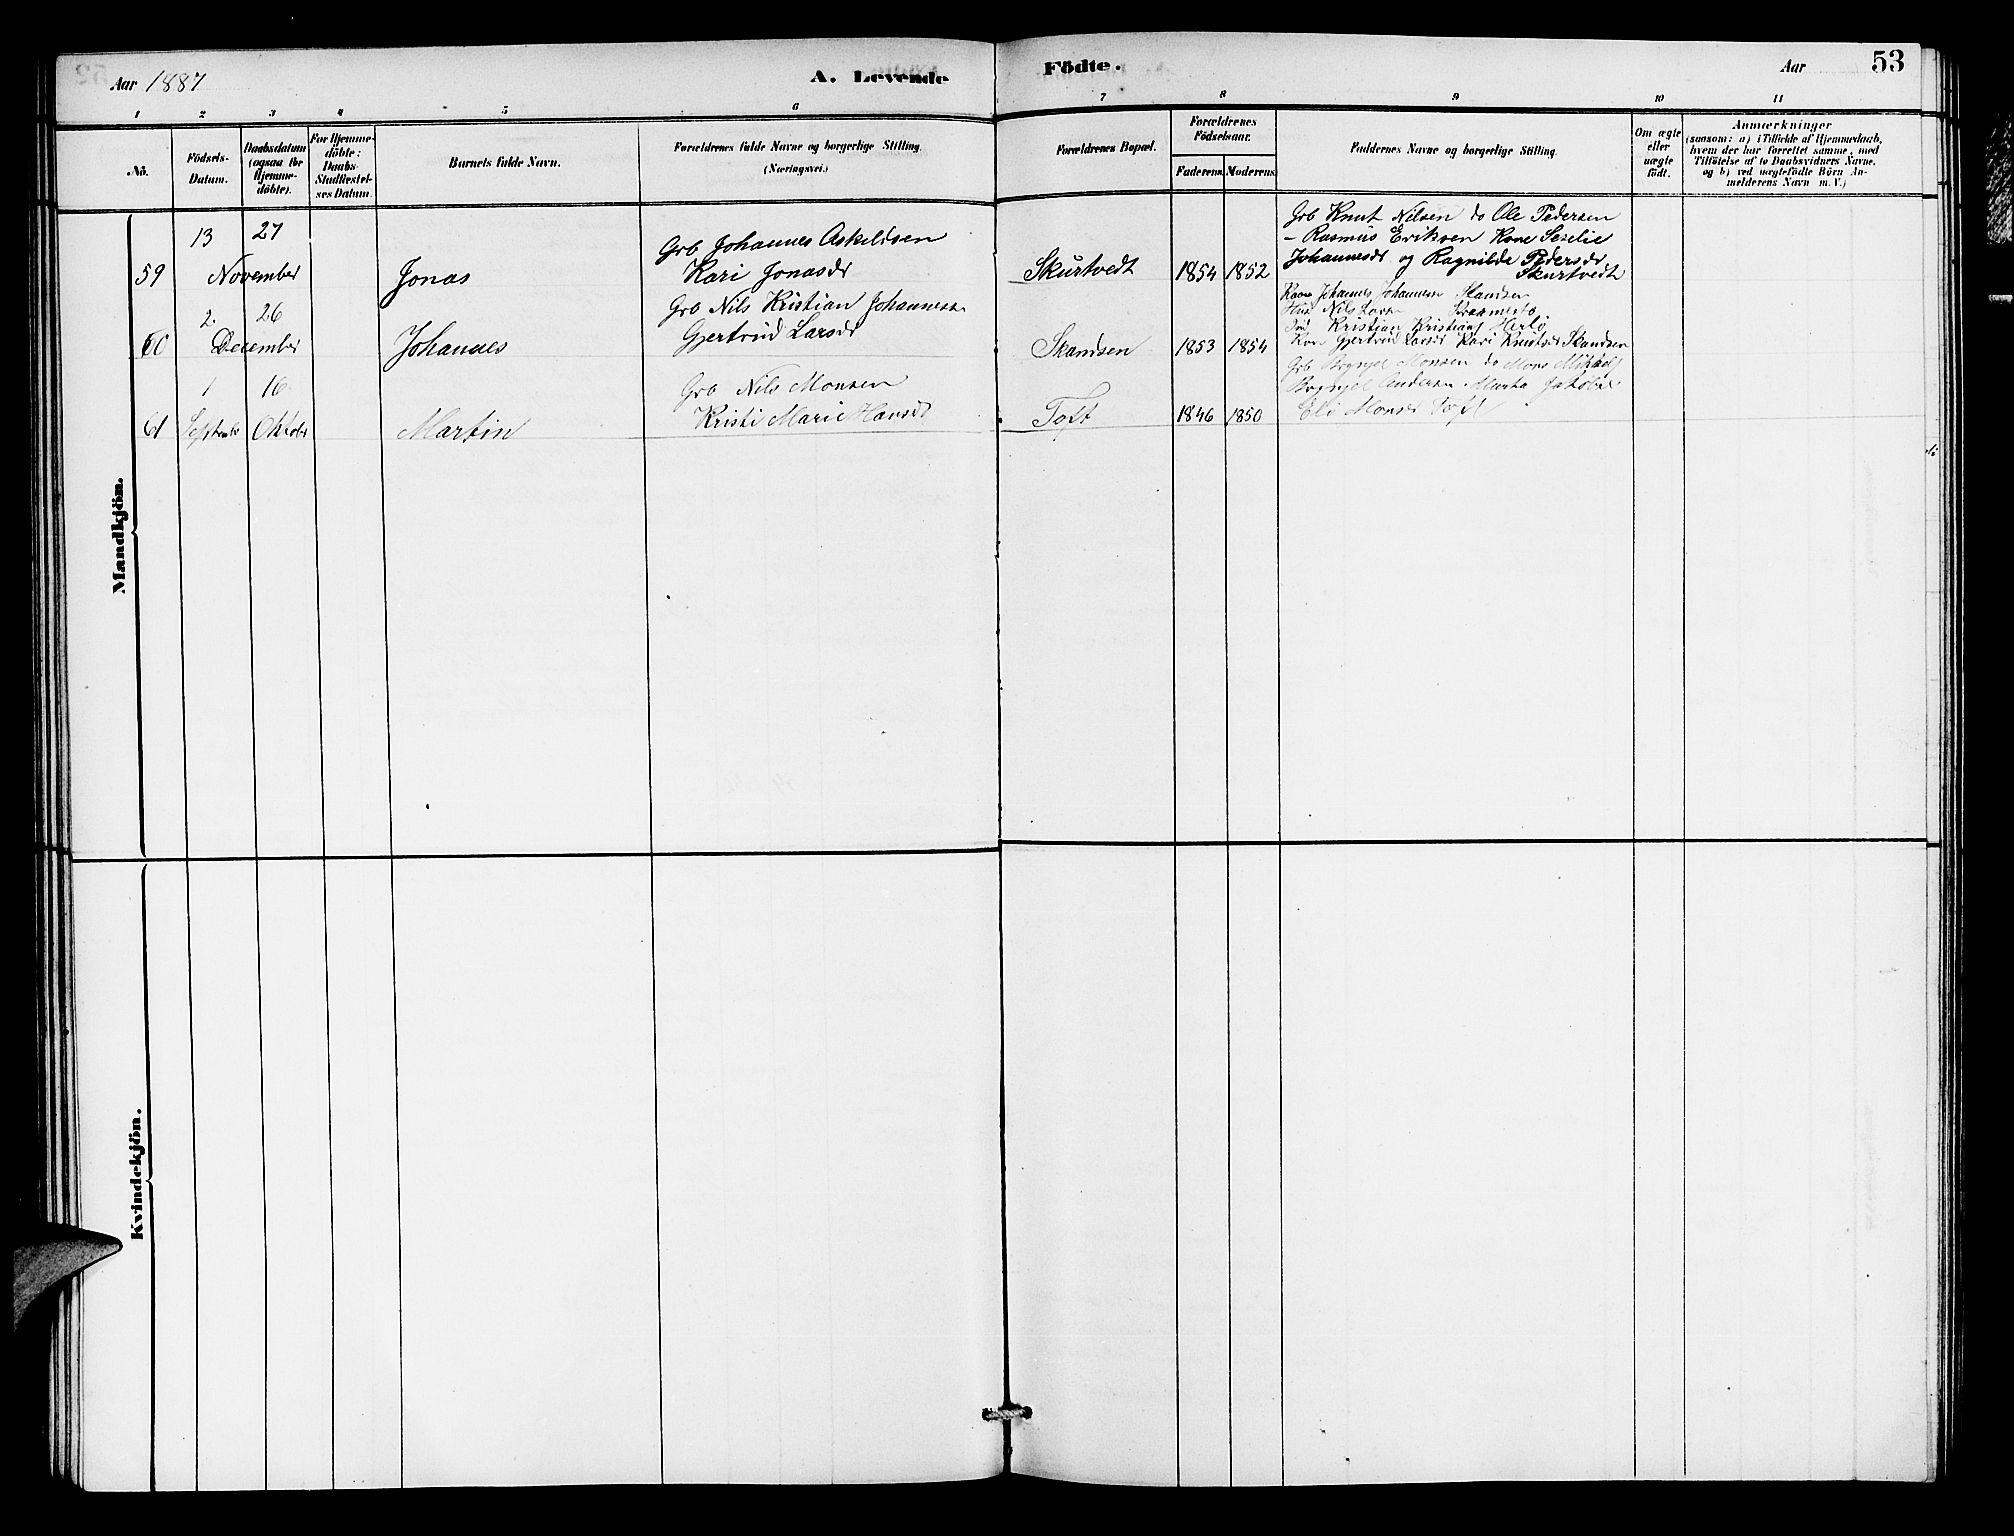 Aar 1887
A. Levende
Födte.
Aar
53
1 2 3 4 5 6 7 8 9 10 11
No.
Födsels-
Datum.
Daabsdatum
(ogsaa for
Hjemme-
döbte).
For Hjemme-
döbte:
Daabs-
Stadfæstel-
ses Datum.
Barnets fulde Navn.
Forældrenes fulde Navne og borgerlige Stilling.
(Næringsvei.)
Forældrenes Bopæl.
Forældrenes
Födselsaar.
Faderens.
Moderens.
Faddernes Navne og borgerlige Stilling.
Om ægte
eller
uægte
födt.
Anmærkninger
(saasom: a) i Tilfælde af Hjemmedaab,
hvem der har forrettet samme, med
Tilföielse af to Daabsvidners Navne.
og b) ved uægtefödte Börn An-
melderens Navn m. V.)
Mandkjön.
59
13 27
November
Jonas
Grb Johannes Askeldsen
Kari Jonasdr
Skurtvedt
1854 1852
Grb Knut Nilsen do Ole Pedersen
- Rasmus Eriksen Kone Seselie
Johannesdr og Ragnilde Pedersdr
Skurtvedt
60
2. 26
December
Johannes
Grb Nils Kristian Johannessen
Gjertrud Larsdr
Skandsen
1853 1854
Johannes Johannessen Skandsen
Nils
Kristian Kristians Herlö
Kon Gjertrud Larsdr Kari Knutsdr Skandsen
61
1 16
Septembr Oktobr
Martin
Grb Nils Monsen
Kristi Marie Hansdr
Toft
1846 1850
Grb Brynjel Monsen do Mons Mikkels
Brynjel Andersen Marta Jakobsd
Eli Monsdr Toft
Kvindekjön.